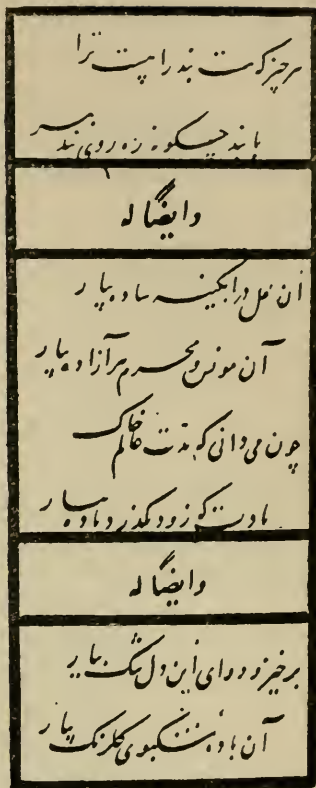 هر چیز که هست بند راهست ترا
با بند چگونه ره روی بند ببر
وایضاً له
آن لعل در آبگینه ساده بیار
آن مونس و محرم هر آزاده بیار
چون میدانی که مدت عالم خاک
بادست که زود بگذرد باده بیار
وایضاً له
برخیز و دوای این دل تنگ بیار
آن باده مشکبوی گلرنگ بیار